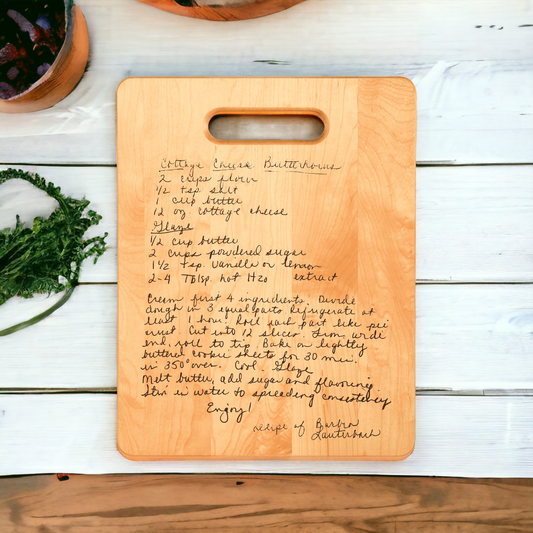 Cottage Cheese Butterhorns
2 cups flour
1/2 tsp salt
1 cup butter
12 oz cottage cheese
Glaze
1/2 cup butter
2 cups powdered sugar
1 1/2 tsp. vanilla or lemon
2-4 Tblsp. hot H20 extract
Cream first 4 ingredients. Divide
dough in 3 equal parts Refrigerate at
least 1 hour. Roll each part like pie
crust Cut into 12 slices. From wide
end, roll to tip. Bake on lightly
buttered cookie sheets for 30 min.
in 350° oven. Cool. Glaze
Melt butter, add sugar and flavoring.
Stir in water to spreading consistency
Enjoy!
recipe of Barbra
Lauterbach